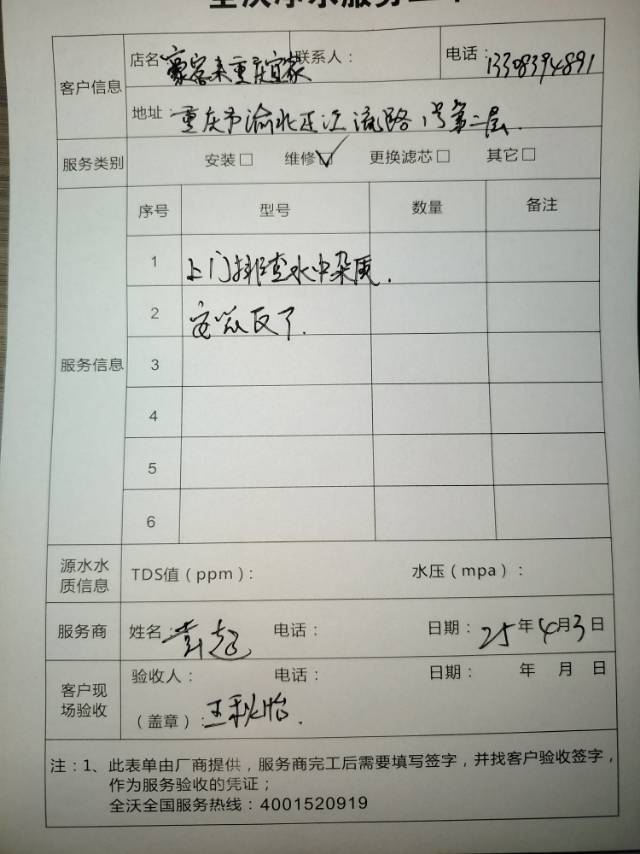 店名 豪客来重庆宜家 联系人： 电话：13308394891
客户信息
地址：重庆市渝北区江流路1号第二层.
服务类别 安装□ 维修☑ 更换滤芯□ 其它□
序号 型号 数量 备注
1 上门排查水中杂质.
2 反了.
服务信息 3
4
5
6
源水水质信息 TDS值（ppm）： 水压（mpa）：
服务商 姓名： 电话： 日期：25年4月3日
客户现场验收 验收人： 电话： 日期： 年 月 日
（盖章）：王秋怡.
注：1、此表单由厂商提供，服务商完工后需要填写签字，并找客户验收签字，
作为服务验收的凭证；
全沃全国服务热线：4001520919